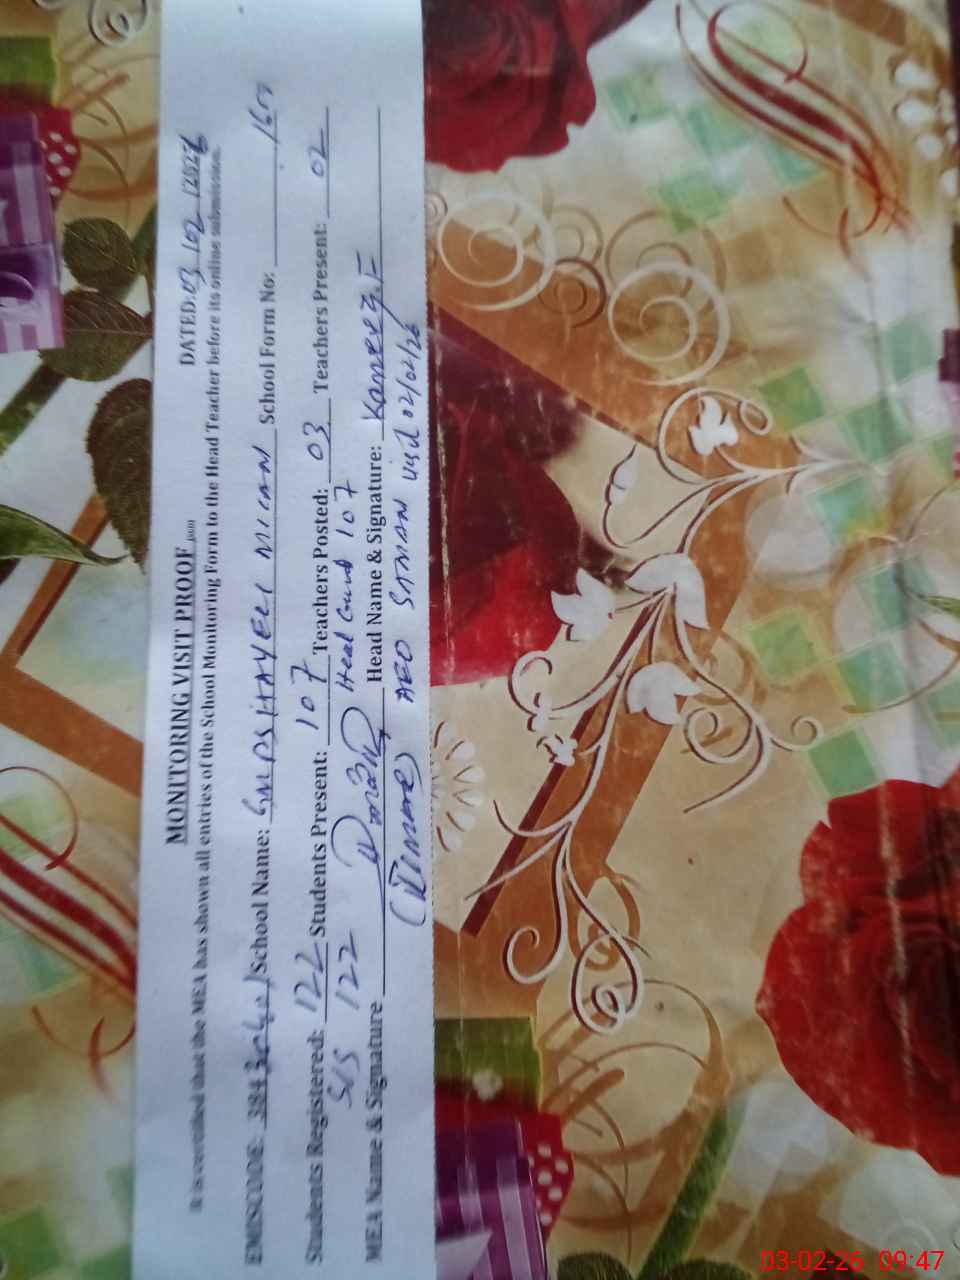 MONITORING VISIT PROOF
DATED: 03/02/2026
It is certified that the MEA has shown all entries of the School Monitoring Form to the Head Teacher before its online submission.
EMISCODE: 384 School Name: School Form No:
Students Registered: 122 Students Present: 107 Teachers Posted: 03 Teachers Present: 02
SIS 122 Head Count 107
MEA Name & Signature Head Name & Signature:
AEO SAMAN visit 02/02/26
03-02-26 09:47